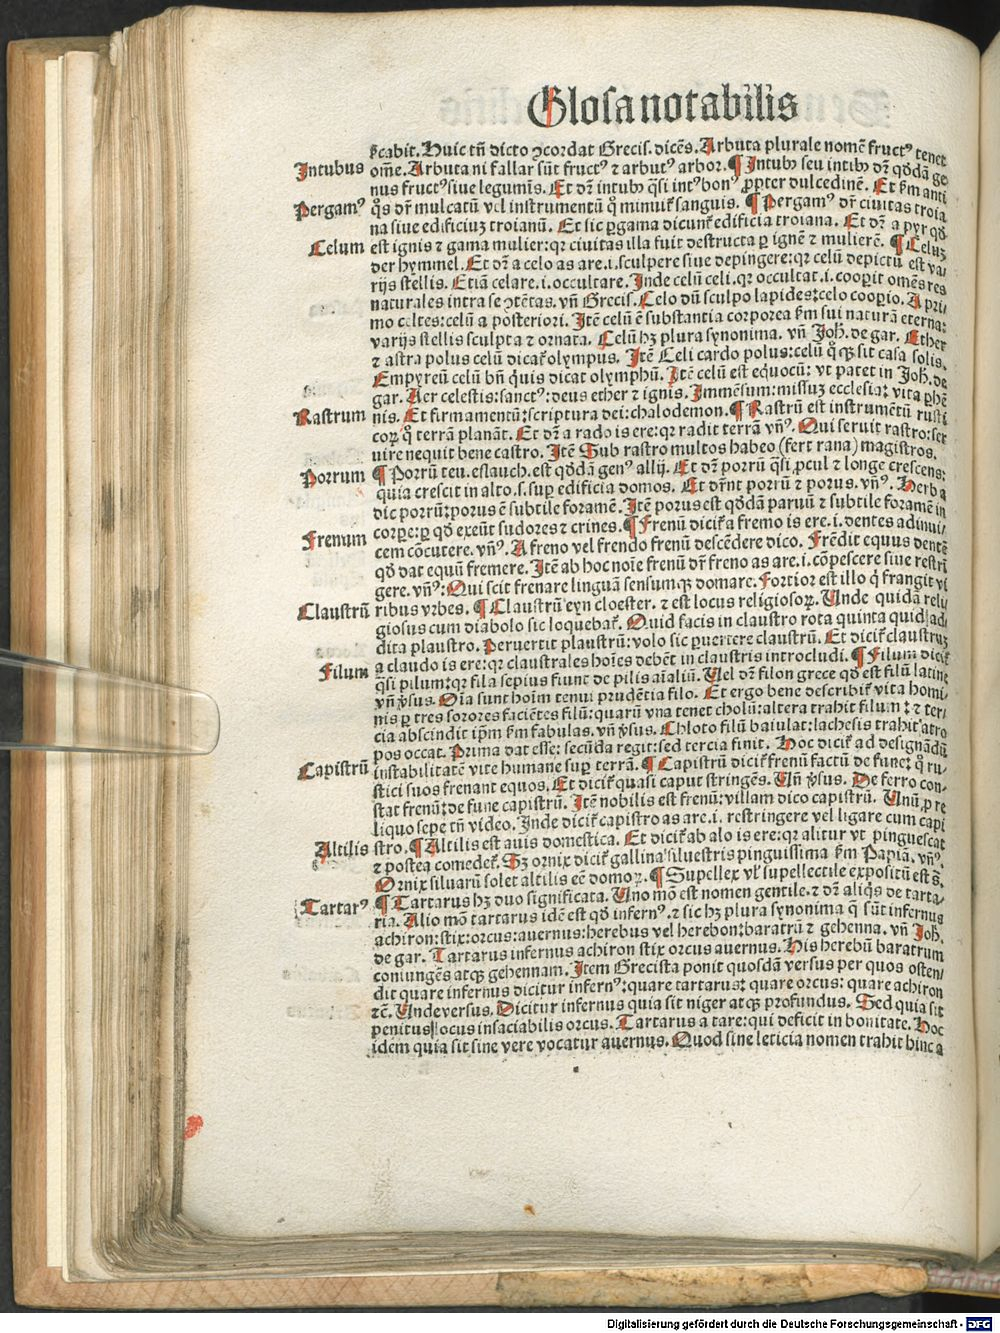 Glosa notabilis
p̄cabit. Huic tn̄ dicto ꝯcordat Grecis. dicēs. Arbuta plurale nomē fructꝰ tenet
Intubus om̄e. Arbuta ni fallar sūt fructꝰ ⁊ arbutꝰ arbor. ¶ Intubꝫ seu intibꝫ dr̄ qd̄dā ge
nus fructꝰ siue leguminis. Et dr̄ intubꝫ q̄si intꝰ bonꝰ ꝓpter dulcedinē. Et ẜm anti
Pergamꝰ q̄s dr̄ mulcatū vel instrumentū q̊ minuit̃ sanguis. ¶ Pergamꝰ dr̄ ciuitas troia
na siue edificiuꝫ troianū. Et sic ꝑgama dicunt̃ edificia troiana. Et dr̄ a pyr qd̄
Celum est ignis ⁊ gama mulier: qꝛ ciuitas illa fuit destructa ꝑ ignē ⁊ mulierē. ¶ Celuꝫ
der hymmel. Et dr̄ a celo as are .i. sculpere siue depingere: qꝛ celū depictū est va
rijs stellis. Etiā celare .i. occultare. Inde celū celi. qꝛ occultat .i. cooperit omēs res
naturales intra se ꝯtētas. vn̄ Grecis. Celo dū sculpo lapides: celo cooperio. A pri
mo celtes: celū a posteriori. Itē celū ē substantia corporea ẜm sui naturā eterna:
varijs stellis sculpta ⁊ ornata. Celū hꝫ plura synonima. vn̄ Joh̄. de gar. Ether
⁊ astra polus celū dicat̃ olympus. Itē Celi cardo polus: celū q̊ qꝫ sit casa solis.
Empyreū celū bn̄ quis dicat olymphū. Itē celū est equocū: vt patet in Joh̄. de
gar. Aer celestis: sanctꝰ: deus ether ⁊ ignis. Immēsum: missuꝫ ecclesia: vita ꝑhē
Rastrum nis. Et firmamentū: scriptura dei: chalodemon. ¶ Rastrū est instrumētū rusti
coꝝ q̊ terrā planāt. Et dr̄ a rado is ere: qꝛ radit terrā vn̄ꝰ. Qui seruit rastro: ser
uire nequit bene castro. Itē Sub rastro multos habeo (fert rana) magistros.
Porrum ¶ Porrū teu. eslauch. est qd̄dā genꝰ allij. Et dr̄ porrū q̄si ꝓcul ⁊ longe crescens:
quia crescit in alto .s. suꝑ edificia domos. Et dr̄nt porrū ⁊ porus. vn̄ꝰ. Herba
dic porrū: porus ē subtile foramē. Itē porus est qd̄dā paruū ⁊ subtile foramē in
Frenum corpe: ꝑ qd̄ exeūt sudores ⁊ crines. ¶ Frenū dicit̃ a fremo is ere .i. dentes adinui
cem cōcutere. vn̄ꝰ. A freno vel frendo frenū descēdere dico. Frēdit equus dentē
qd̄ dat equū fremere. Itē ab hoc noīe frenū dr̄ freno as are .i. cōpescere siue restri
gere. vn̄ꝰ: Qui scit frenare linguā sensumqꝫ domare. Fortior est illo q̇ frangit vi
Claustrū ribus vrbes. ¶ Claustrū eyn cloester. ⁊ est locus religiosoꝝ. Unde quidā reli
giosus cum diabolo sic loquebat̃. Quid facis in claustro rota quinta quid ad
dita plaustro. Peruertit plaustrū: volo sic ꝑuertere claustrū. Et dicit̃ claustruꝫ
Filum a claudo is ere: qꝛ claustrales hoīes debēt in claustris introcludi. ¶ Filum dicit̃
q̄si pilum: qꝛ fila sepius fiunt de pilis aīaliū. Uel dr̄ filon grece qd̄ est filū latine
vn̄ ꝟsus. Oīa sunt hoīm tenui prudētia filo. Et ergo bene describit̃ vita homi
nis ꝑ tres sorores faciētes filū: quarū vna tenet cholū: altera trahit filum: ⁊ ter
cia abscindit ip̄m ẜm fabulas. vn̄ ꝟsus. Chloto filū baiulat: lachesis trahit atro
pos occat. Prima dat esse: secūda regit: sed tercia finit. Hoc dicit̃ ad designādū
Capistrū instabilitatē vite humane suꝑ terrā. ¶ Capistrū dicit̃ frenū factū de fune: q̊ ru
stici suos frenant equos. Et dicit̃ quasi caput stringēs. Un̄ ꝟsus. De ferro con
stat frenū: de fune capistrū. Itē nobilis est frenū: villam dico capistrū. Unū ꝓ re
liquo sepe tn̄ video. Inde dicit̃ capistro as are .i. restringere vel ligare cum capi
Altilis stro. ¶ Altilis est auis domestica. Et dicit̃ ab alo is ere: qꝛ alitur vt pinguescat
⁊ postea comedet̃. Sꝫ ornix dicit̃ gallina siluestris pinguissima ẜm Papiā. vn̄ꝰ.
Ornix siluarū solet altilis eē domoꝝ. ¶ Supellex vl̓ supellectile expositū est s̄.
Tartarꝰ ¶ Tartarus hꝫ duo significata. Uno mō est nomen gentile. ⁊ dr̄ aliq̇s de tarta
ria. Alio mō tartarus idē est qd̄ infernꝰ. ⁊ sic hꝫ plura synonima q̄ sūt infernus
achiron: stix: orcus: auernus: herebus vel herebon: baratrū ⁊ gehenna. vn̄ Joh̄.
de gar. Tartarus infernus achiron stix orcus auernus. His herebū baratrum
coniungēs atqꝫ gehennam. Item Grecista ponit quosdā versus per quos osten
dit quare infernus dicitur infernꝰ: quare tartarus: quare orcus: quare achiron
⁊cē. Unde versus. Dicitur infernus quia sit niger atqꝫ profundus. Sed quia sit
penitus locus insaciabilis orcus. Tartarus a tare: qui deficit in bonitate. Hoc
idem quia sit sine vere vocatur auernus. Quod sine leticia nomen trahit hinc a
Digitalisierung gefördert durch die Deutsche Forschungsgemeinschaft - DFG